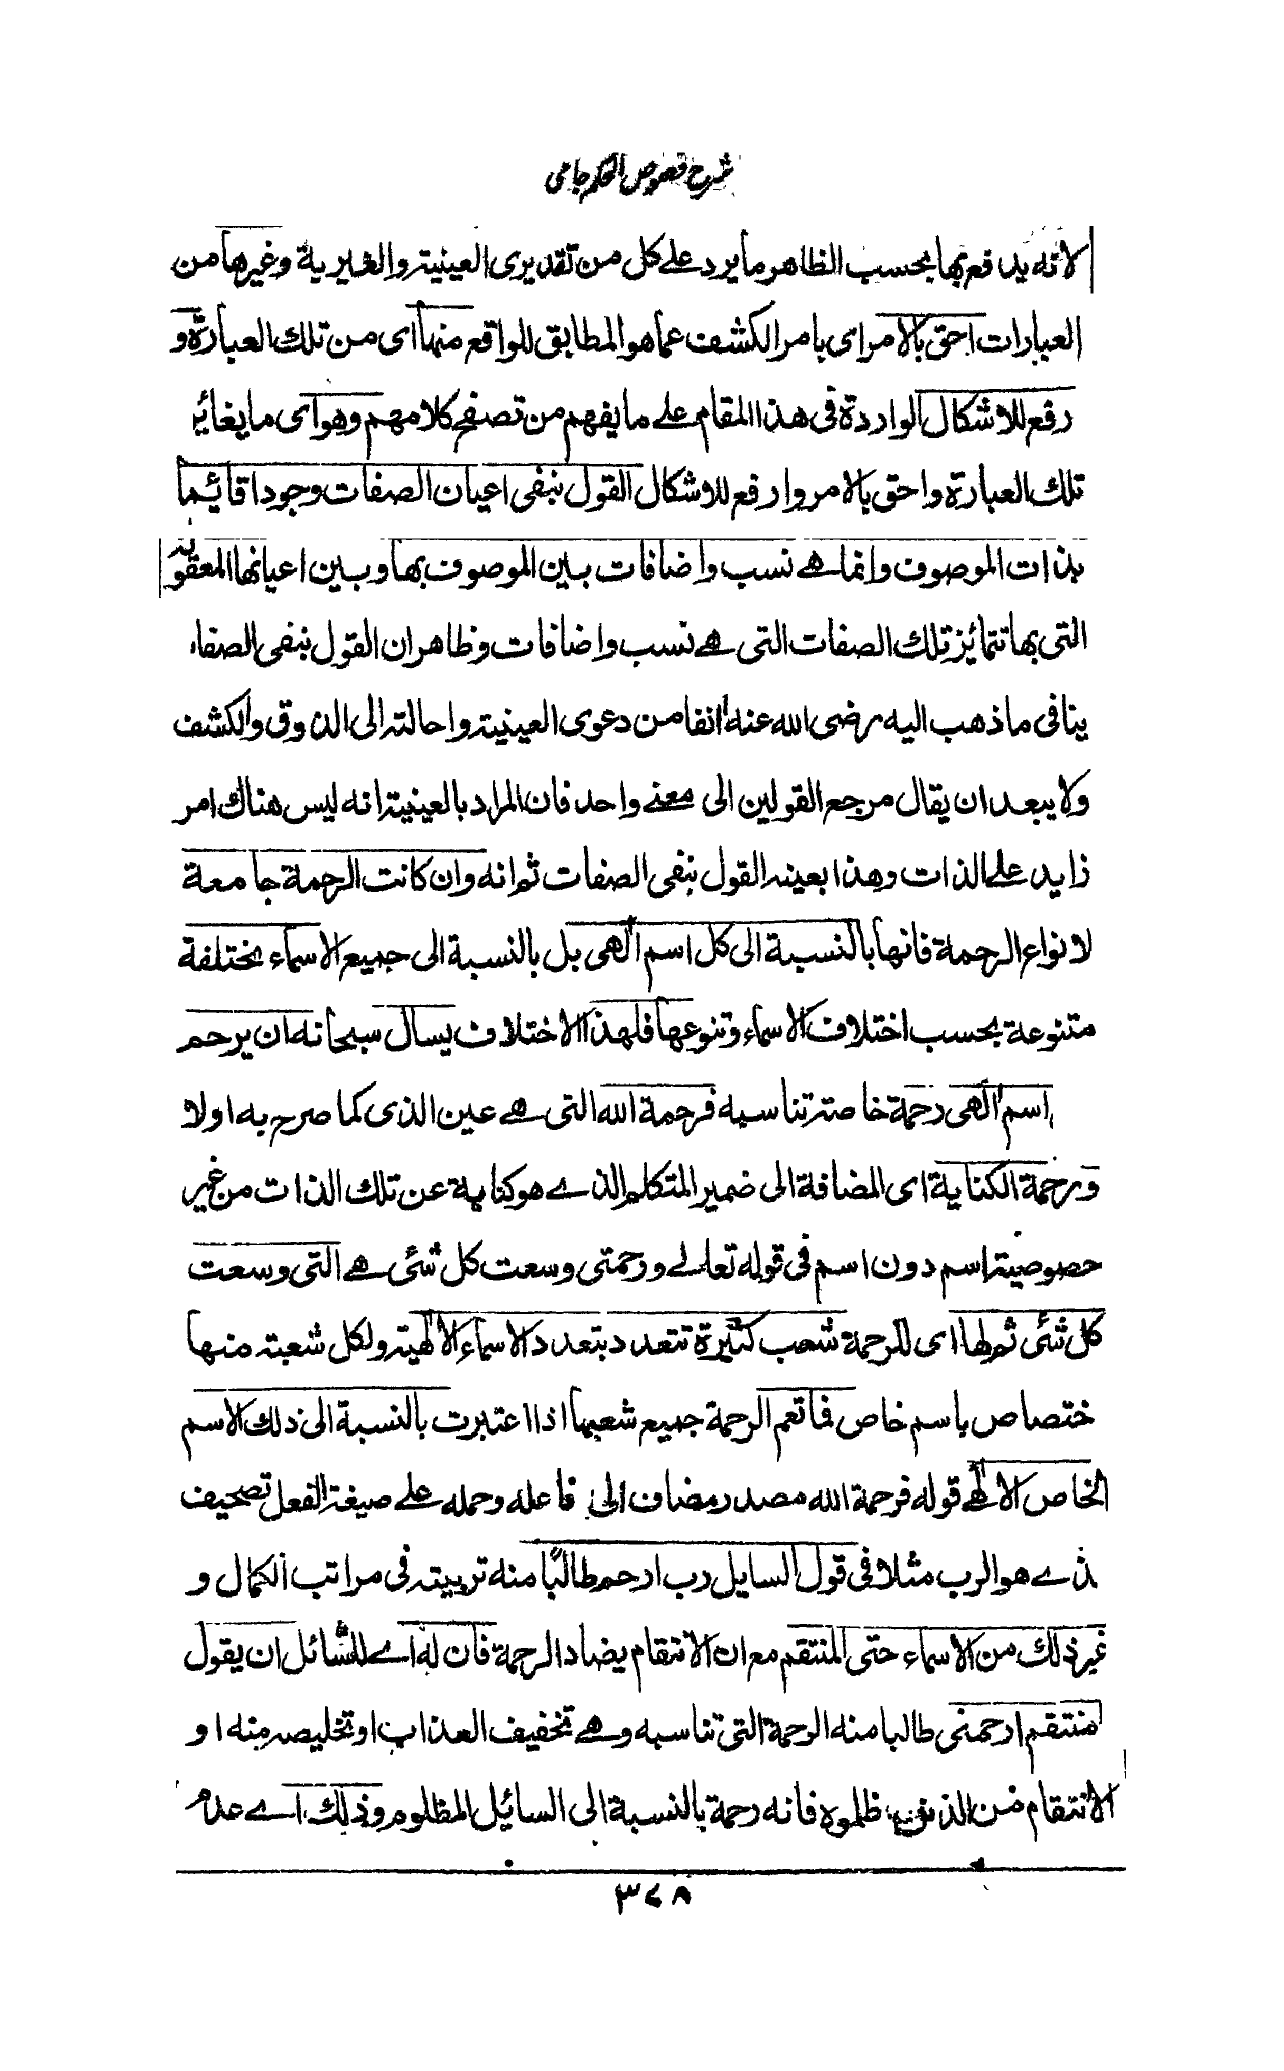 شرح فصوص الحكم جامى
لانه يدفع بها بحسب الظاهر ما يرد على كل من تقديرى العينية والغيرية وغيرها من
العبارات احق بالامر اى بامر الكشف عما هو المطابق للواقع منها اى من تلك العبارة و
رفع للاشكال الواردة فى هذا المقام على ما يفهم من تصفح كلامهم وهو اى ما يغائر
تلك العبارة واحق بالامر وارفع للاشكال القول بنفى اعيان الصفات وجودا قائيما
بذات الموصوف وانما هے نسب واضافات بين الموصوف بها وبين اعيانها المعقولة
التى بها تتمائز تلك الصفات التى هے نسب واضافات وظاهر ان القول بنفى الصفات
ينافى ما ذهب اليه رضى الله عنه انفا من دعوى العينية واحالته الى الذوق والكشف
ولا يبعد ان يقال مرجع القولين الى معنے واحد فان المراد بالعينية انه ليس هناك امر
زايد على الذات وهذا بعينه القول بنفى الصفات ثم انه وان كانت الرحمة جامعة
لانواع الرحمة فانها بالنسبة الى كل اسم الهى بل بالنسبة الى جميع الاسماء مختلفة
متنوعة بحسب اختلاف الاسماء وتنوعها فلهذا الاختلاف يسال سبحانه ان يرحم
اسم الهى رحمة خاصة تناسبه فرحمة الله التى هے عين الذى كما صرح به اولا
ورحمة الكناية اى المضافة الى ضمير المتكلم الذے هو كناية عن تلك الذات من غير
حصوصية اسم دون اسم فى قوله تعالے ورحمتى وسعت كل شئى هے التى وسعت
كل شئى ثم لها اى للرحمة شعب كثيرة تتعدد بتعدد الاسماء الالهية ولكل شعبة منها
ختصاص باسم خاص فما تعم الرحمة جميع شعبها اذا اعتبرت بالنسبة الى ذلك الاسم
الخاص الالهے قوله فرحمة الله مصدر مضاف الى فاعله وحمله على صيغة الفعل تصحيف
ذے هو الرب مثلا فى قول السايل رب ارحم طالبًا منه تربيته فى مراتب الكمال و
غير ذلك من الاسماء حتى المنتقم مع ان الانتقام يضاد الرحمة فان له اے للسّائل ان يقول
منتقم ارحمنى طالبا منه الرحمة التى تناسبه وهے تخفيف العذاب او تخليصه منه او
الانتقام من الذين ظلموه فانه رحمة بالنسبة الى السائيل المظلوم وذلك اے عدم
٣٤٨